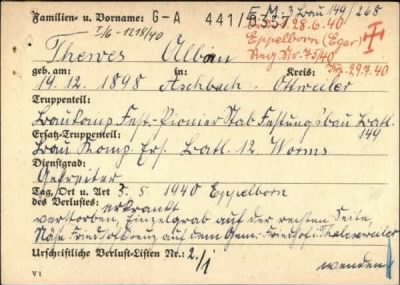 Familien- u. Vorname: G-A 441/
I/6-1218/40
28.6.40
Eppelborn (Eger)
Reg Nr. 75/40
29.7.40
Thewes Alban
geb. am: in: Kreis:
19.12.1898 Aschbach. Ottweiler
Truppenteil:
Baukomp. Fest.-Pionier Stab Festungsbau Batl.
Ersatz-Truppenteil: 149
Bau Komp. Ers. Batl. 12. Worms
Dienstgrad:
Gefreiter
Tag, Ort u. Art 3. 5. 1940 Eppelborn
des Verlustes: erkrankt
verstorben, Einzelgrab auf der rechten Seite,
Nähe Friedhofkreuz auf dem Gem.-Friedhof i. Thalexweiler
Urschriftliche Verlust-Listen Nr.: 2/1
wenden!
V1